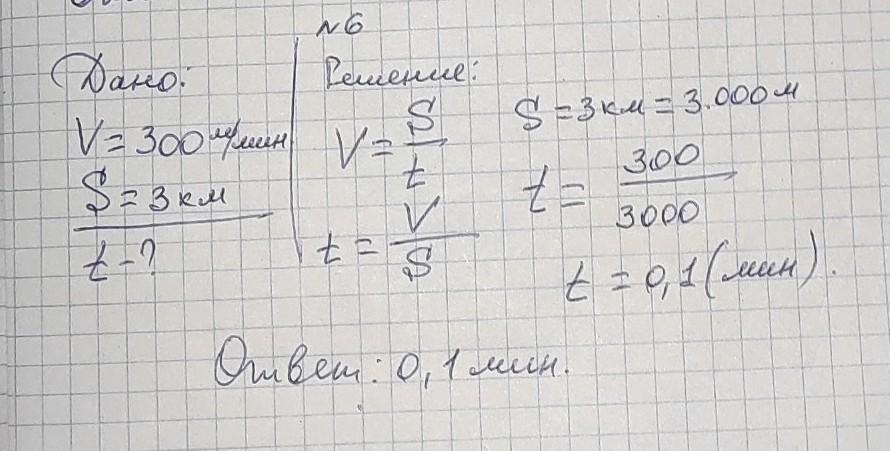 №6
Дано:
V = 300 м/мин
S = 3 км
t - ?
Решение:
V = S/t
t = V/S
S = 3 км = 3.000 м
t = 300/3000
t = 0,1 (мин).
Ответ: 0,1 мин.